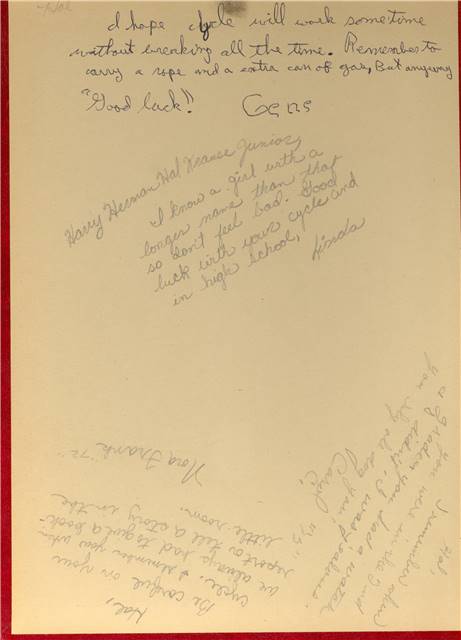 Hal
I hope cycle will work sometime
without wreaking all the time. Remember to
carry a rope and a extra can of gas, But anyway
"Good luck!" Gene
Harry Herman Hal Krause Junior,
I know a girl with a
longer name than that
so don't feel bad. Good
luck with your cycle and
in high school,
Linda
Hal,
Be careful on your
cycle. I remember you when
we always had to give a book
report or tell a story in the
little room.
Nora Frank "72"
Hal,
I remember when
you were in the 2nd
you had a water
didn't, I was jealous.
You sly old dog you,